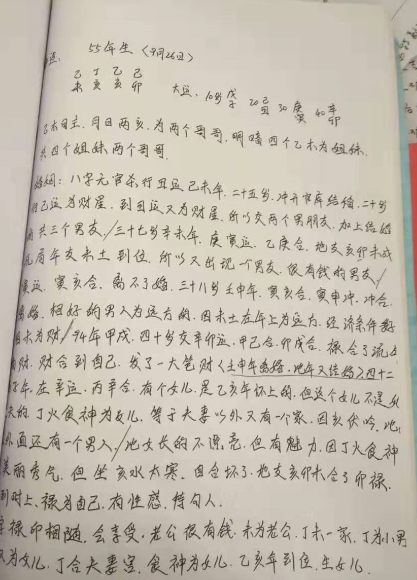 55年生(9月26日)
乙 丁 乙 己
未 亥 亥 卯 大运:10岁戊子 20己丑 30庚寅 40辛卯
乙木日主,月日两亥,为两个哥哥,明暗四个乙木为姐妹,
共四个姐妹两个哥哥。
婚姻:八字无官杀,行丑运己未年,二十五岁,冲开官库结婚,二十岁
行己运为财星,到丑运又为财星,所以交两个男朋友,加上结婚
共三个男友/三十七岁辛未年,庚寅运,乙庚合,地支亥卯未成
局用年支未土到位,所以又出现一个男友,很有钱的男友/
寅运,寅亥合,离不了婚,三十八岁壬申年,寅亥合,寅申冲,冲合
离婚,相好的男人为远方的,因未土在年上为远方,经济条件好
因未为财/94年甲戌,四十岁交辛卯运,甲己合,卯戌合,禄合了流年
财,财合到自己,发了一大笔财(壬申年离婚,此年又结婚)四十二
子年,在辛运,丙辛合,有个女儿,是乙亥年怀上的,但这个女儿不是丈
夫的,丁火食神为女儿,等于夫妻以外又有一个家,因亥伏吟,她
外面还有一个男人/此女长的不漂亮,但有魅力,因丁火食神
美丽秀气,但坐亥水太寒,因合坏了,地支亥卯未合了卯禄,
到时上,禄为自己,有性感,待勾人。
禄印相随,会享受,老公很有钱,未为老公,丁未一家,丁为小男
为女儿,丁合夫妻宫,食神为女儿,乙亥年到位,生女儿.